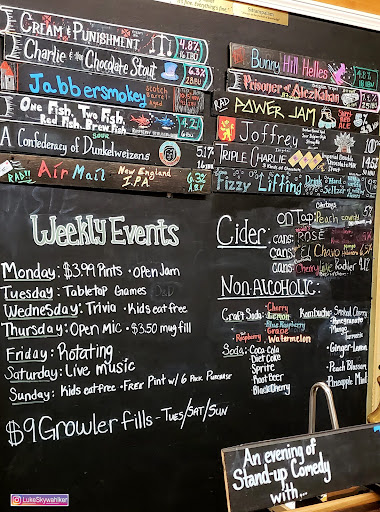 Cream & Punishment 4.8%
Charlie & the Chocolate Stout 6.3%
28 IBU
Jabbersmokey Scotch Barrel Aged
One Fish, Two Fish,
Red Fish, Brew Fish 4.2%
Sour
A Confederacy of Dunkelweizens 5.1%
RAD!! Air Mail New England I.P.A. 6.3%
Bunny Hill Helles 4.8%
Prisoner of Alezkaban
RAD Pawer Jam
Joffrey
Triple Charlie
Fizzy Lifting Drink Hard Seltzer
Weekly Events
Monday: $3.99 Pints • Open Jam
Tuesday: Tabletop Games D&D
Wednesday: Trivia • Kids eat free
Thursday: Open Mic • $3.50 mug fill
Friday: Rotating
Saturday: Live Music
Sunday: Kids eat free • Free Pint w/ 6 Pack Purchase
$9 Growler Fills - Tues/Sat/Sun
Cider: on Tap: Peach
cans: Rosé
cans: El Chavo
cans: Cherry Radler
Non Alcoholic:
Craft Soda: Cherry
Lemon
Blue Raspberry
Grape
Raspberry Watermelon
Soda: Coca Cola
Diet Coke
Sprite
Root Beer
Black Cherry
Kombucha: Spiked Cherry
Pomegranate
Mango
Turmeric
• Ginger-Lemon
• Peach Blossom
• Pineapple Mint
An evening of
Stand-up Comedy
with...
LukeSkywahlker